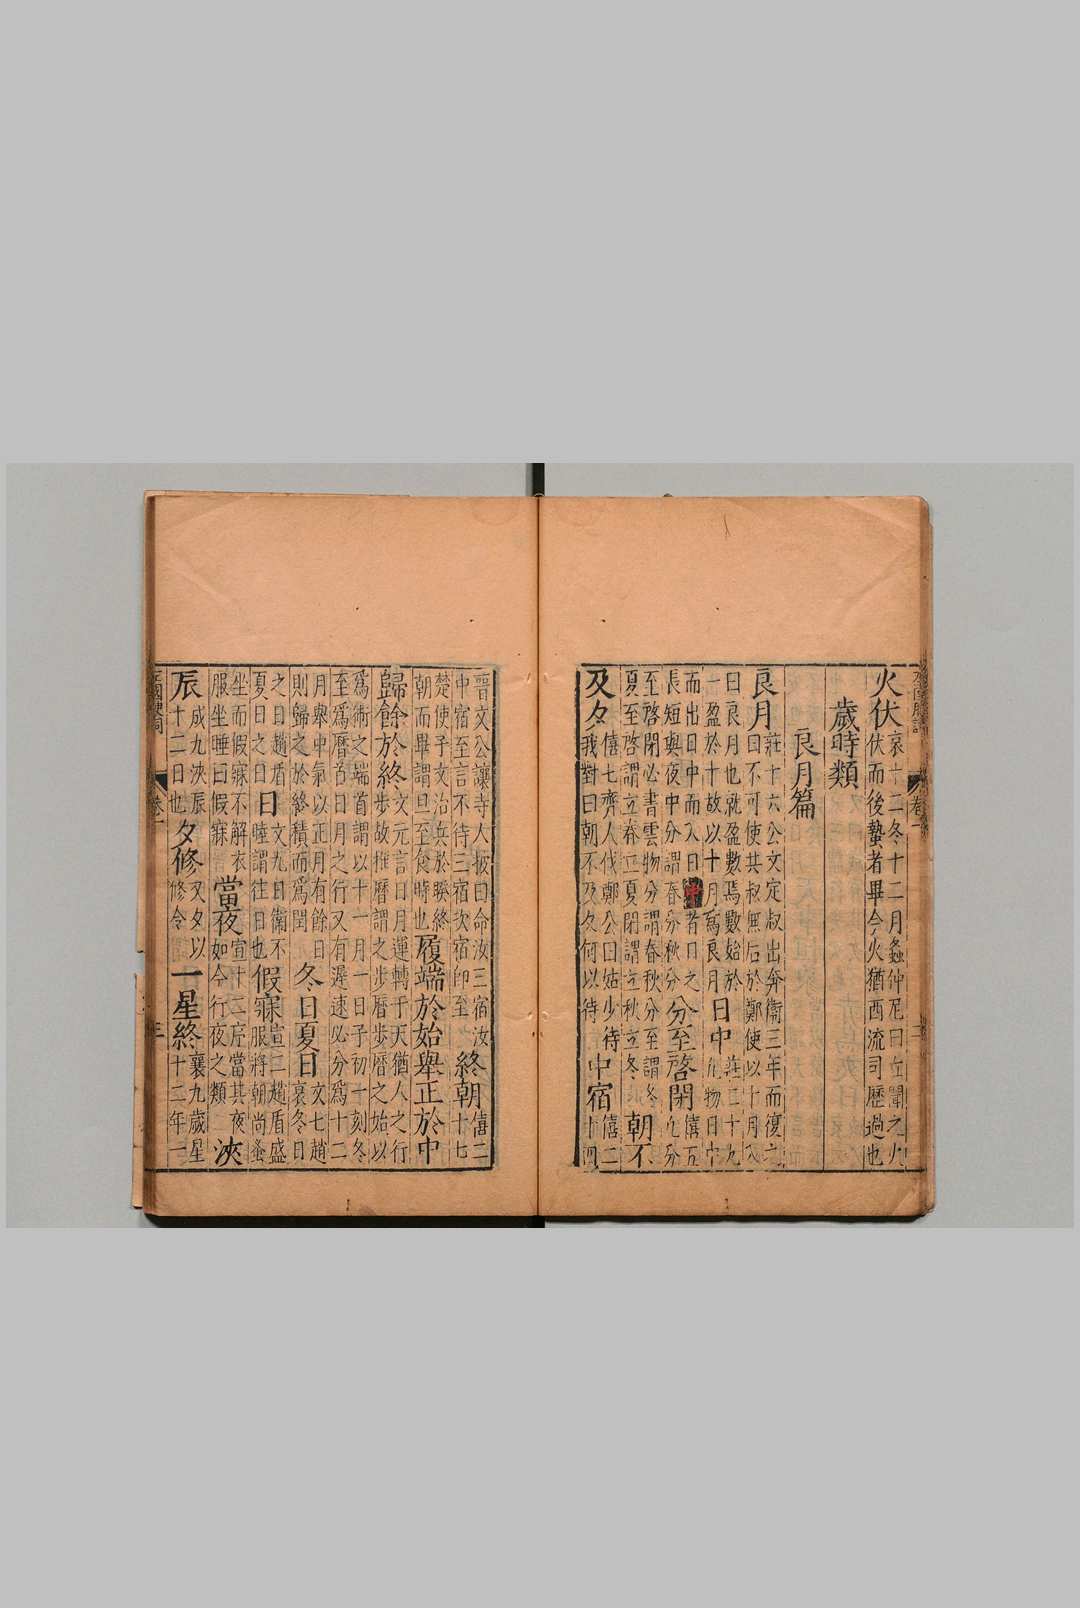 火伏哀十二冬十二月螽仲尼曰丘聞之火
伏而後蟄者畢今火猶西流司歷過也
歲時類
良月篇
良月莊十六公父定叔出奔衛三年而復之
曰不可使共叔無后於鄭使以十月入
曰良月也就盈數焉數始於
一盈於十故以十月為良月日中莊二十九
凡物日中
而出日中而入日中者日之
長短與夜中分謂春分秋分分至啓閉僖五
凡分
至啓閉必書雲物分謂春秋分至謂冬
夏至啓謂立春立夏閉謂立秋立冬朝不
及夕僖七齊人伐鄭公曰姑少待
我對曰朝不及夕何以待中宿僖二
十四
晉文公讓寺人披曰命汝三宿汝
中宿至言不待三宿次宿即至終朝僖二
十七
楚使子文治兵於睽終
朝而畢謂旦至食時也履端於始舉正於中
歸餘於終文元言日月運轉于天猶人之行
步故推曆謂之步曆步曆之始以
為術之端首謂以十一月一日子初一刻冬
至為曆首日月之行又有遲速必分為十二
月舉中氣以正月有餘日
則歸之於終積而為閏冬日夏日文七趙
衰冬日
之日趙盾
夏日之日日文九日衛不
睦謂往日也假寐宣二趙盾盛
服將朝尚蚤
坐而假寐不解衣
服坐睡曰假寐當夜宣十二序當其夜
如今行夜之類浹
辰成九浹辰
十二日也夕修又夕以
修令一星終襄九歲星
十二年一
卷一
三